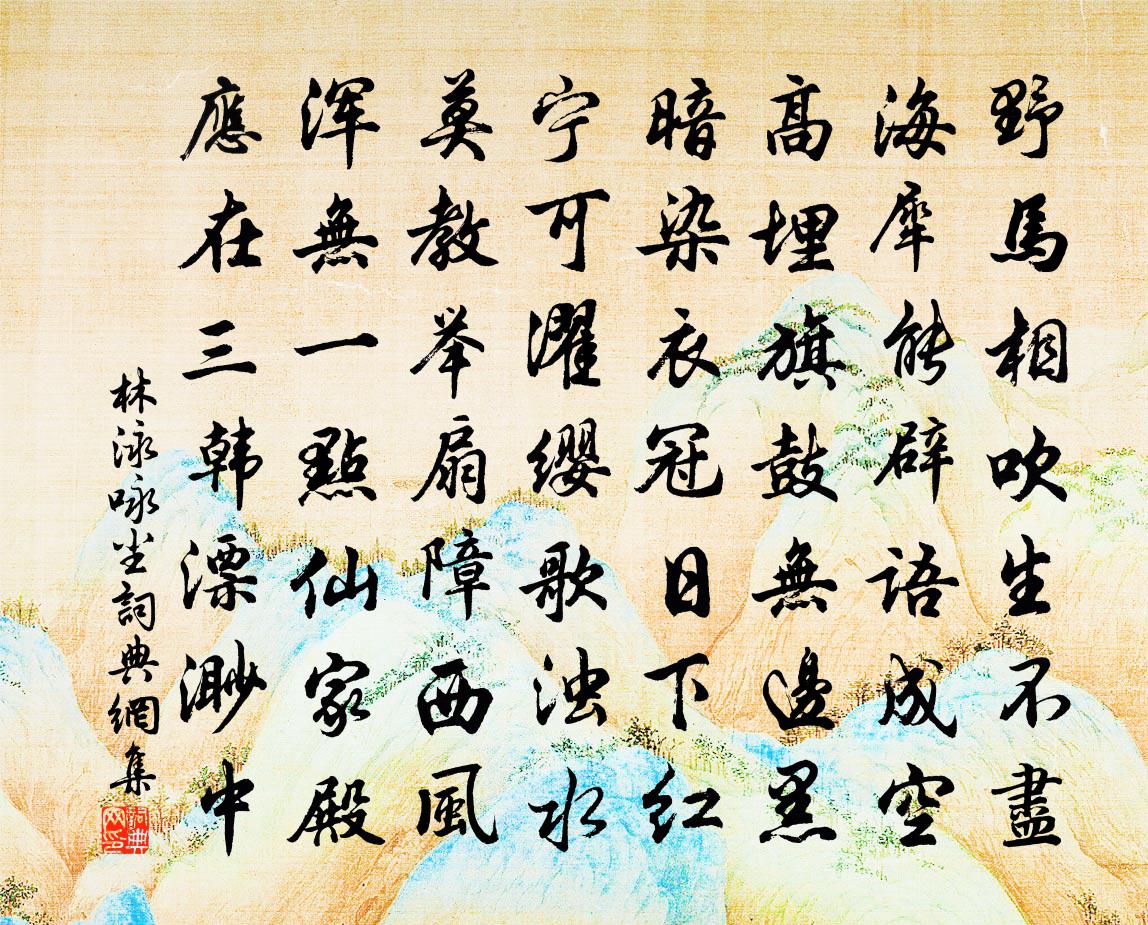 野馬相吹生不盡
海犀能辟語成空
高埋旗鼓無邊黑
暗染衣冠日下红
宁可濯缨歌浊水
莫教举扇障西風
浑無一點仙家殿
應在三韩漂渺中
林泳咏尘詞典網集
詞典網印